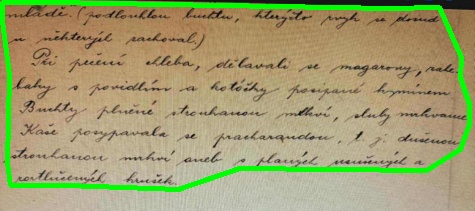 mládě. (podlouhlou buchtu, kterýžto zvyk se posud
u některých zachoval.)
Při pečení chleba, dělavali se magarony,
s povidlím a koláčky posipané kymínem
Buchty plněné strouhanou mrkví,
Kaše posypavala se pracharandou, t. j. dušenou
strouhanou mrkví aneb s planých usušených a
roztlučených hrušek.